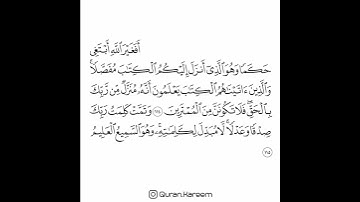 أَفَغَيْرَ ٱللَّهِ أَبْتَغِى
حَكَمًا وَهُوَ ٱلَّذِىٓ أَنزَلَ إِلَيْكُمُ ٱلْكِتَٰبَ مُفَصَّلًا ۚ
وَٱلَّذِينَ ءَاتَيْنَٰهُمُ ٱلْكِتَٰبَ يَعْلَمُونَ أَنَّهُۥ مُنَزَّلٌ مِّن رَّبِّكَ
بِٱلْحَقِّ ۖ فَلَا تَكُونَنَّ مِنَ ٱلْمُمْتَرِينَ ١١٤ وَتَمَّتْ كَلِمَتُ رَبِّكَ
صِدْقًا وَعَدْلًا ۚ لَّا مُبَدِّلَ لِكَلِمَٰتِهِۦ ۚ وَهُوَ ٱلسَّمِيعُ ٱلْعَلِيمُ
١١٥
Quran.Kareem